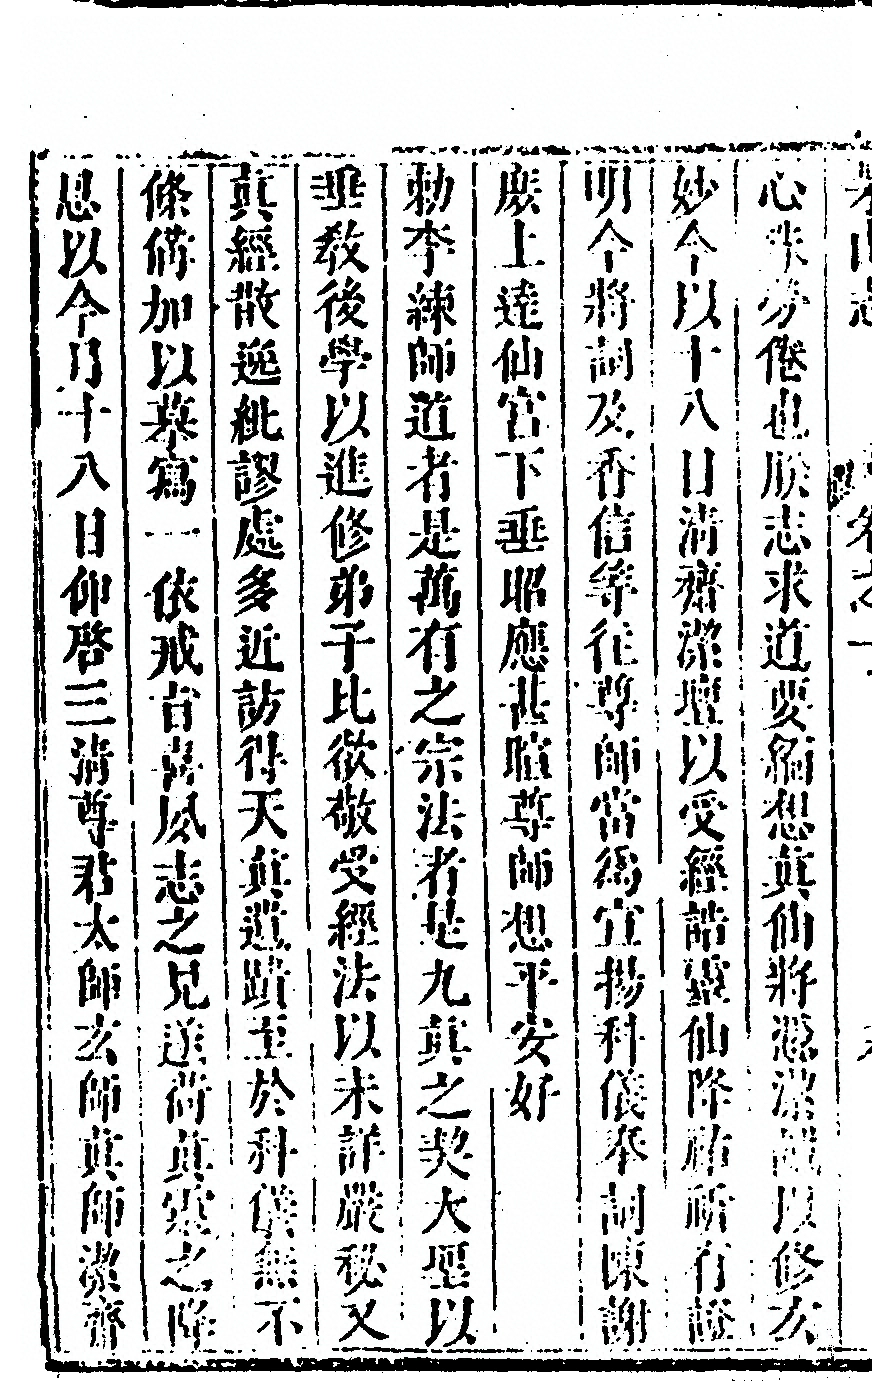 茅山志 卷之一
心非勞倦也朕志求道要緬想真仙將潔誠以修玄
妙今以十八日清齋潔壇以受經誥靈仙降祐祈有證
明今將詞及香信等往尊師當為宣揚科儀奉詞陳謝
庶上達仙官下垂昭應甚暄尊師想平安好
勅李練師道者是萬有之宗法者是九真之契大聖以
垂教後學以進修弟子比欲敬受經法以未詳嚴秘又
真經散逸紕謬處多近訪得天真遺蹟至於科儀無不
條備加以摹寫一依戒旨喜夙志之兄遂荷真靈之降
恩以今月十八日仰啓三清尊君太師玄師真師潔齊